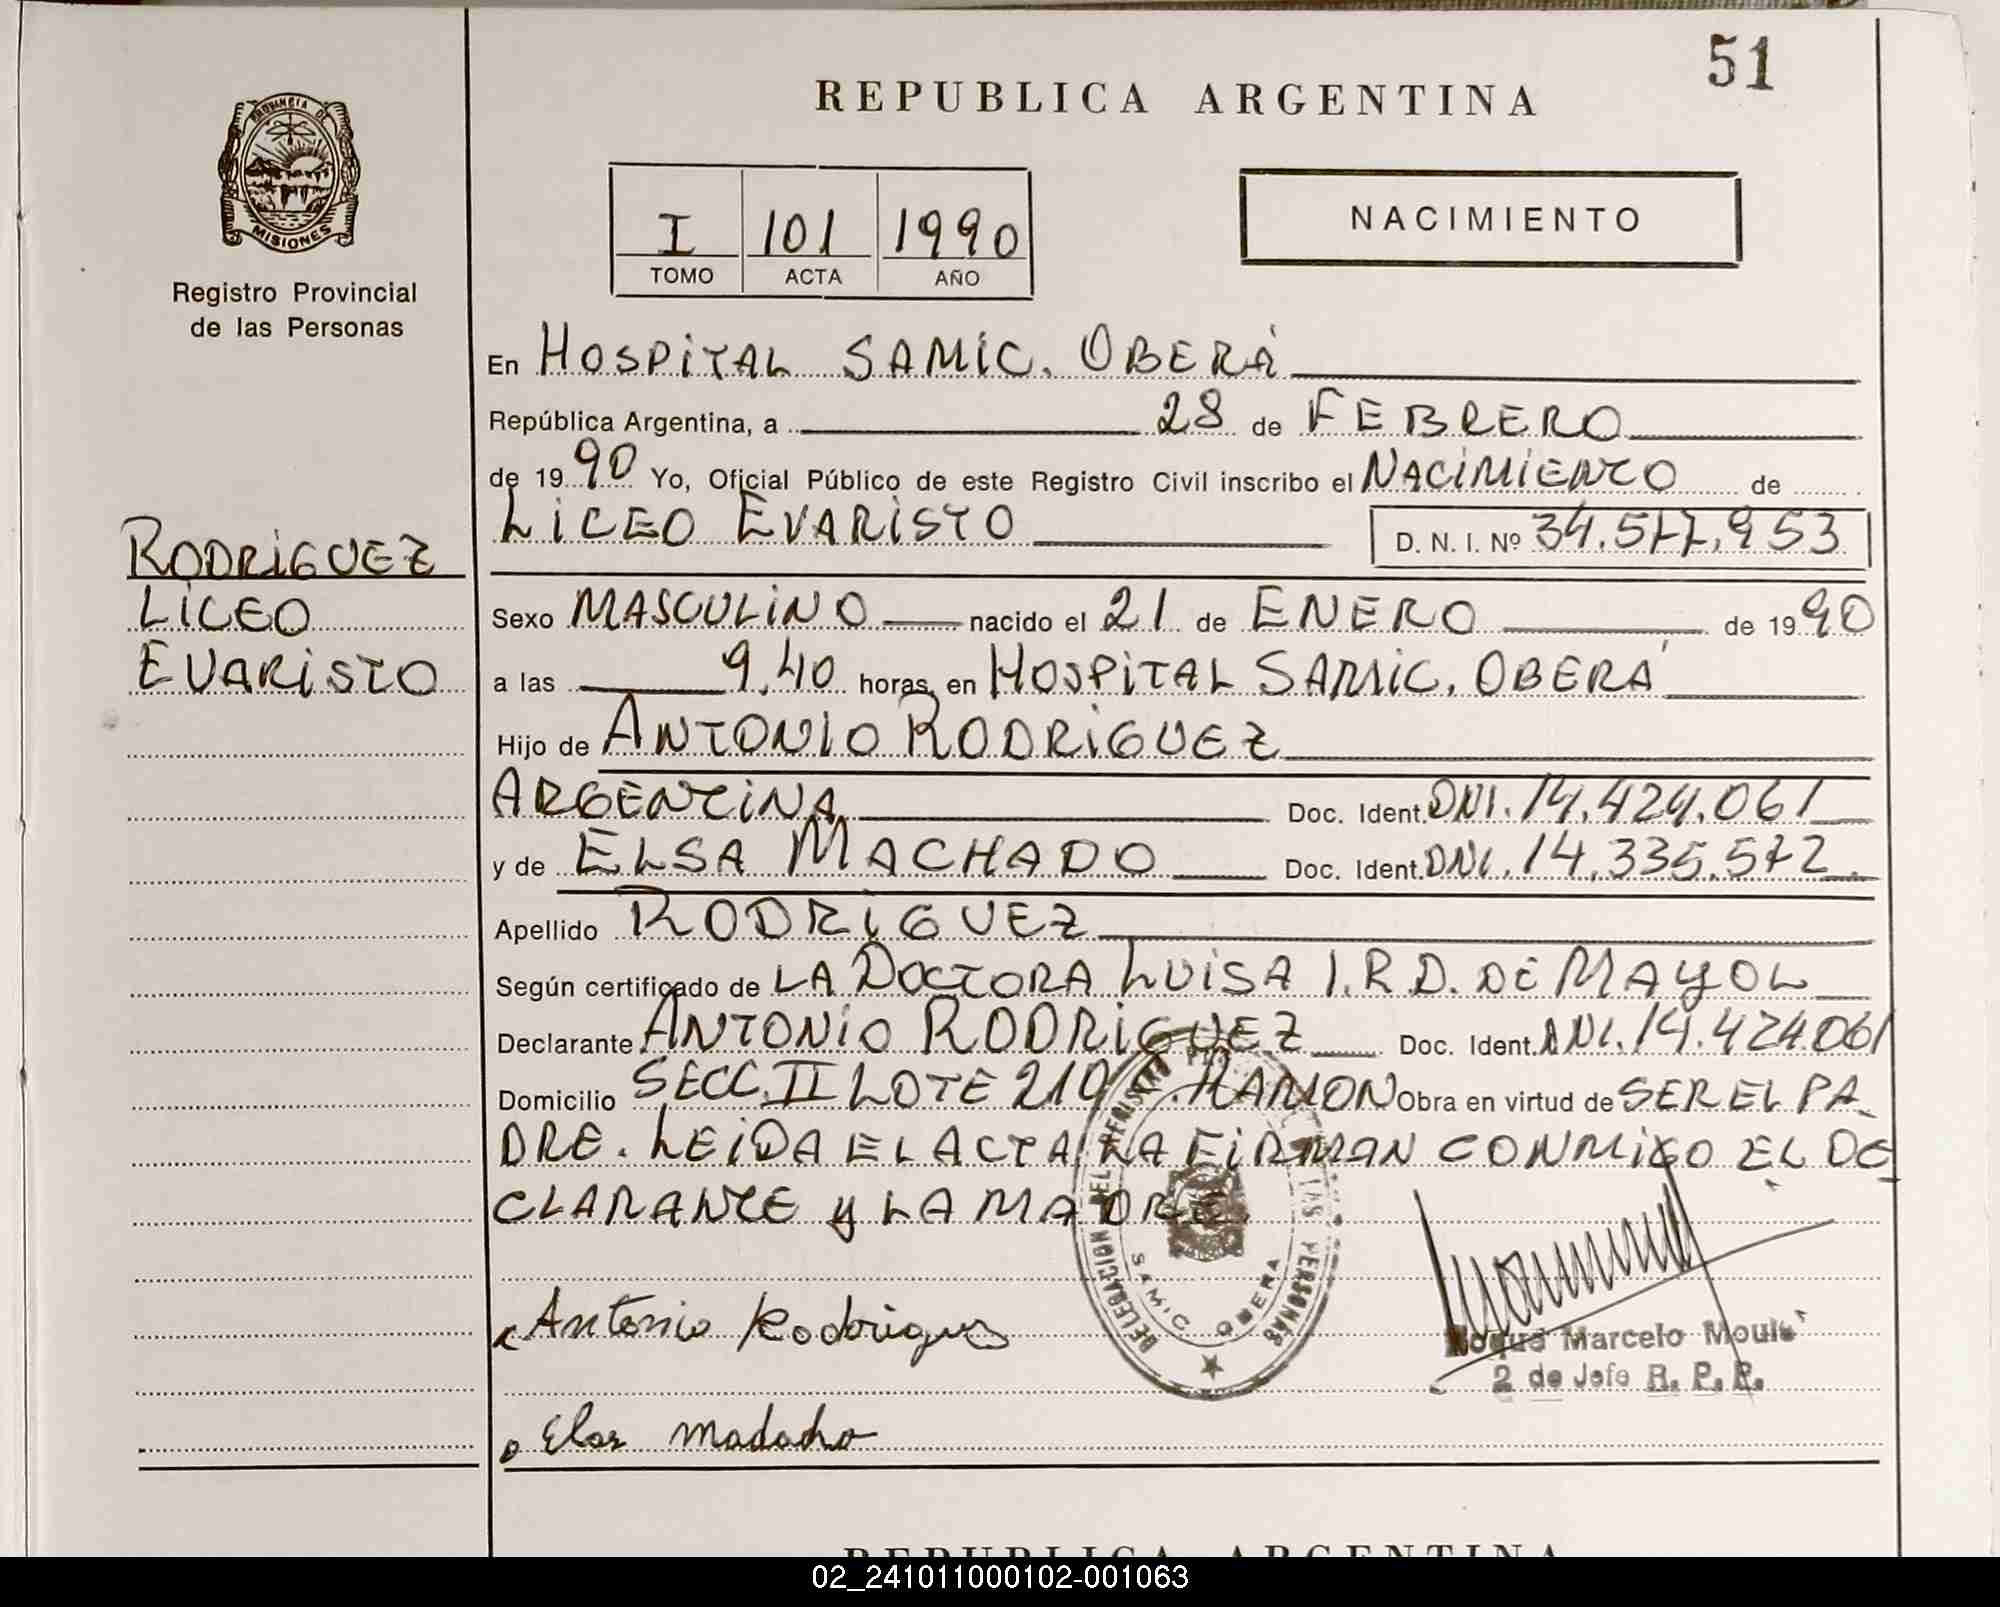 51
REPUBLICA ARGENTINA
PROVINCIA DE
MISIONES
Registro Provincial
de las Personas
I 101 1990
TOMO ACTA AÑO
NACIMIENTO
En HOSPITAL SAMIC. OBERÁ
República Argentina, a 28 de FEBRERO
de 1990 Yo, Oficial Público de este Registro Civil inscribo el NACIMIENTO de
LICEO EVARISTO D. N. I. Nº 34.577.953
RODRIGUEZ
LICEO
EVARISTO
Sexo MASCULINO nacido el 21 de ENERO de 1990
a las 9,40 horas, en HOSPITAL SAMIC. OBERÁ
Hijo de ANTONIO RODRIGUEZ
ARGENTINA Doc. Ident. DNI. 14.424.061
y de ELSA MACHADO Doc. Ident. DNI. 14.335.572.
Apellido RODRIGUEZ
Según certificado de LA DOCTORA LUISA I.R.D. DE MAYOL
Declarante ANTONIO RODRIGUEZ Doc. Ident. DNI. 14.424.061
Domicilio SECC. II LOTE 210 Obra en virtud de SER EL PA
DRE. LEIDA EL ACTA LA FIRMAN CONMIGO EL DE
CLARANTE y LA MADRE.
DELEGACION DEL REGISTRO LAS PERSONAS
SAMIC OBERA
Antonio Rodrigues
Roque Marcelo
2 de Jefe R. P. P.
Elsa
REPUBLICA ARGENTINA
02_241011000102-001063